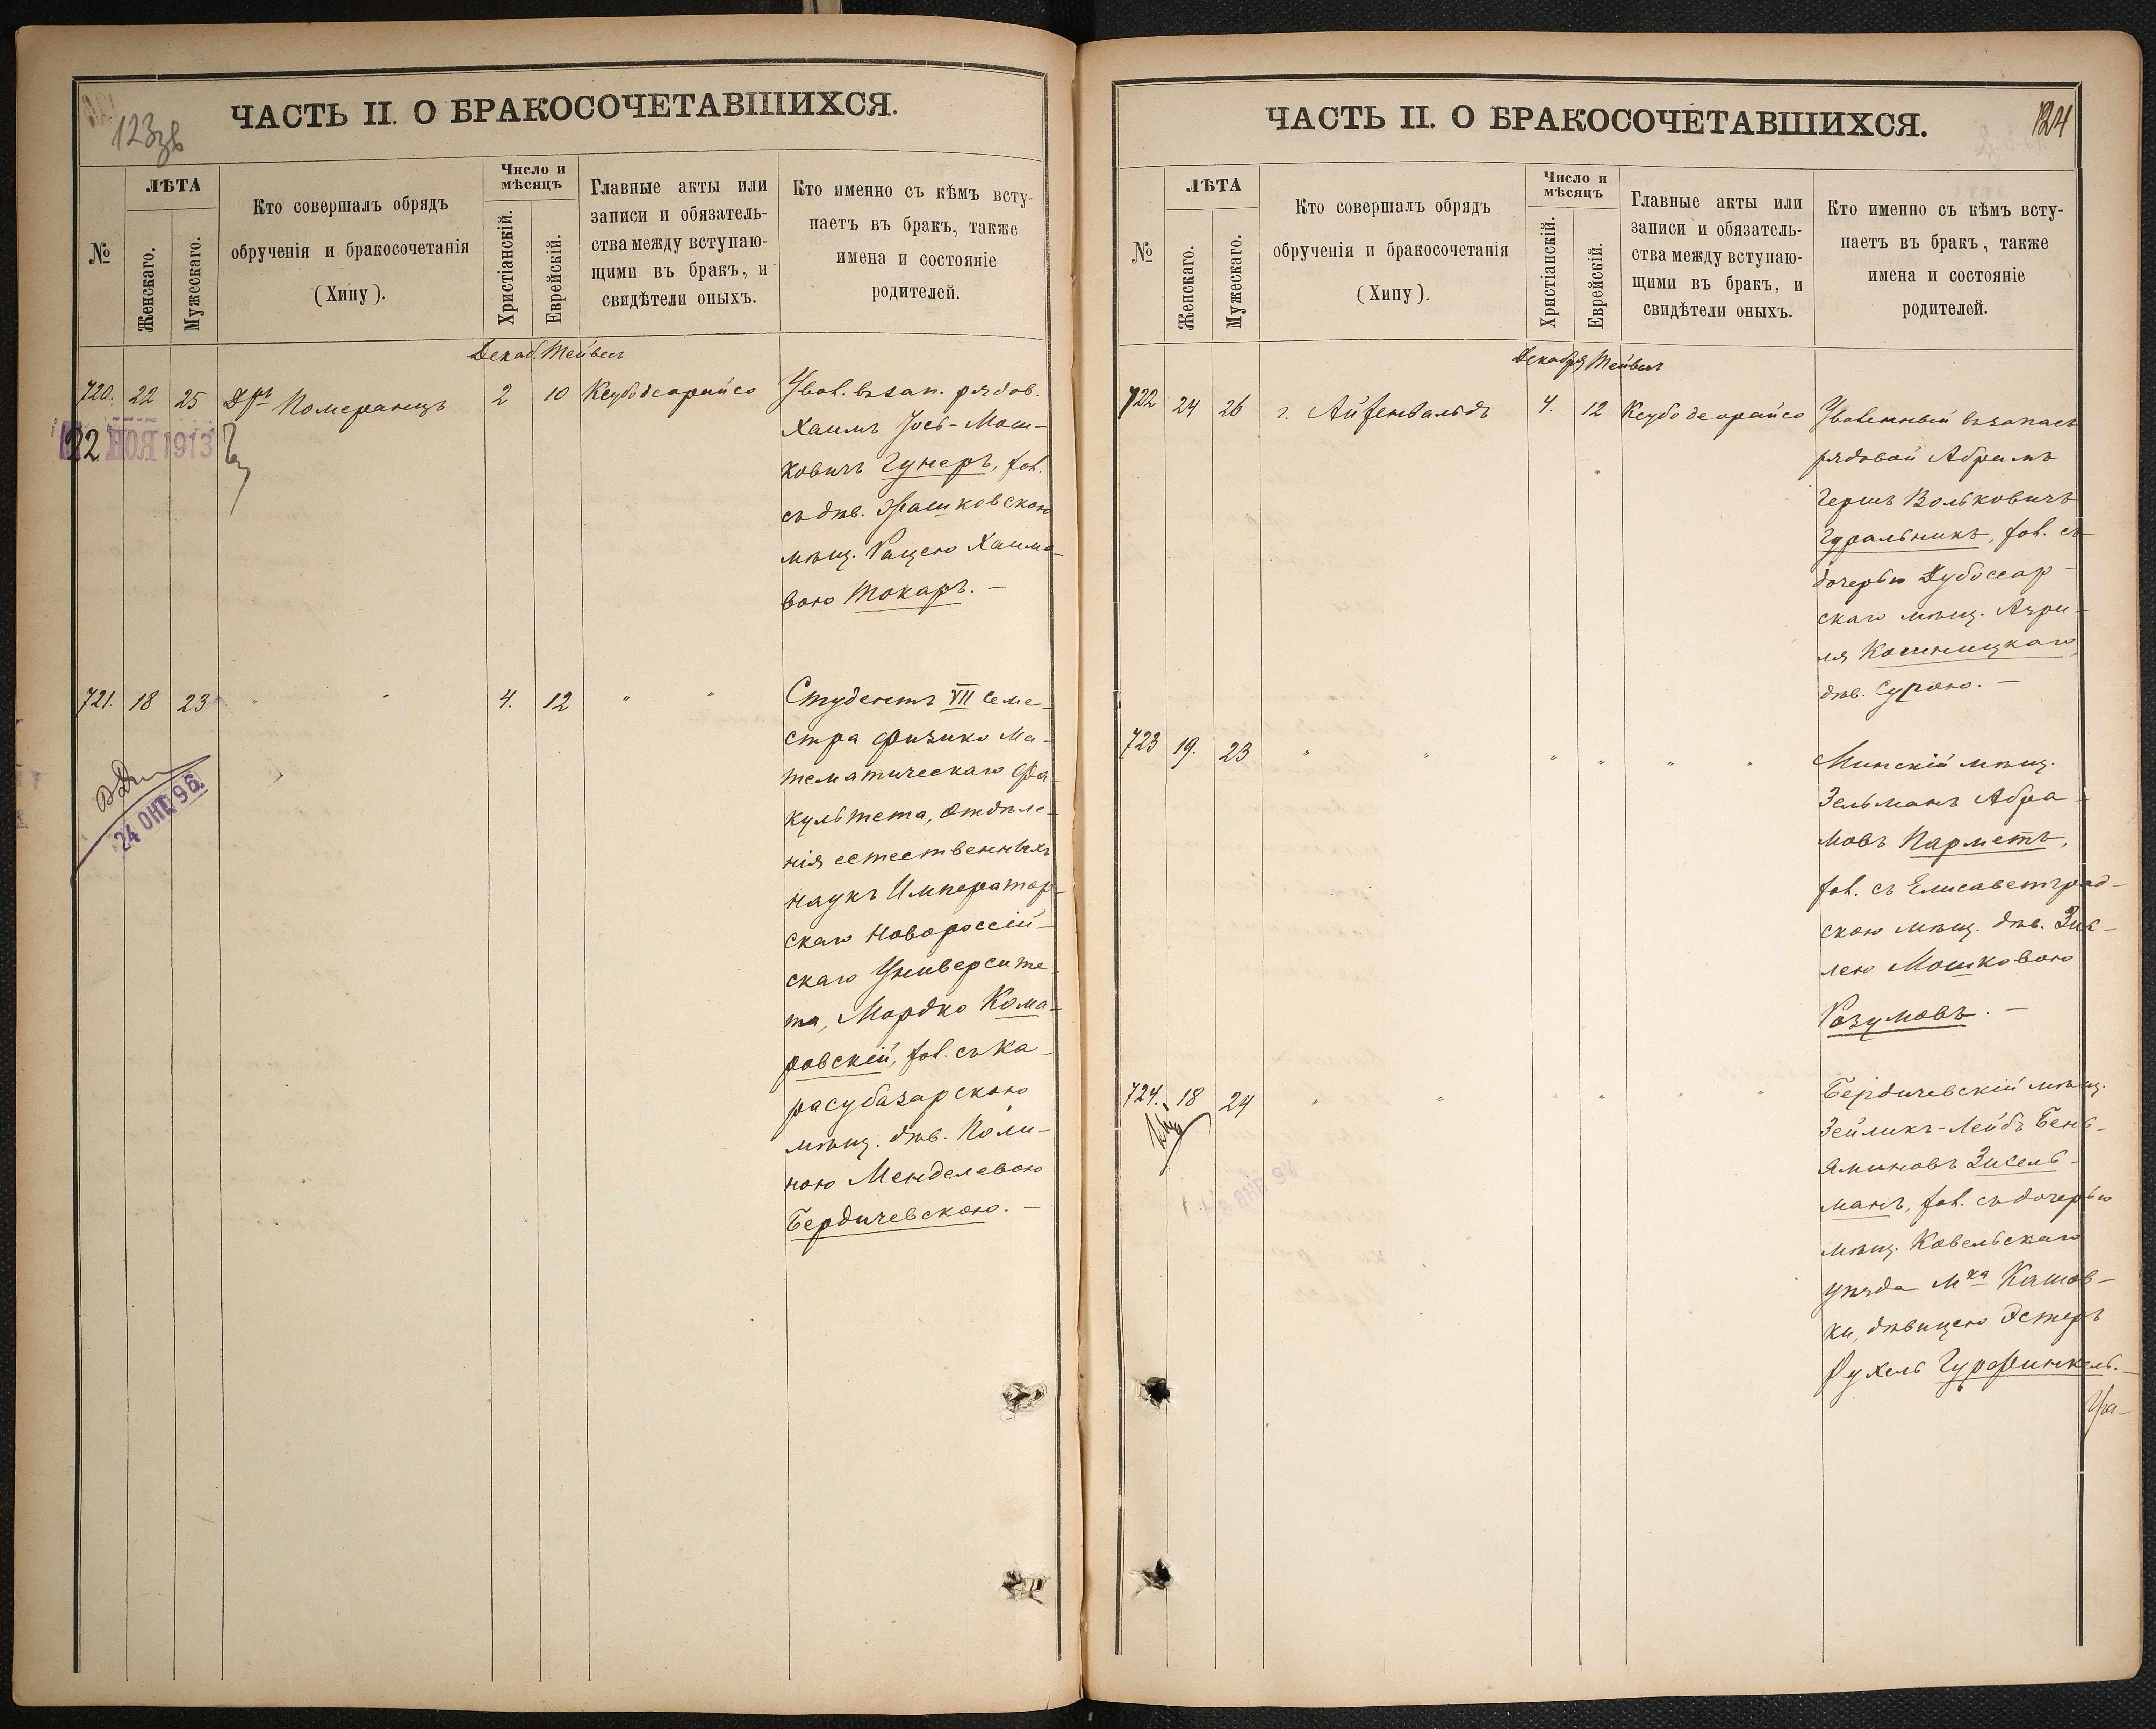 123зв
ЧАСТЬ II. О БРАКОСОЧЕТАВШИХСЯ.
№
ЛѢТА
Женскаго.
Мужескаго.
Кто совершалъ обрядъ
обрученія и бракосочетанія
(Хипу).
Число и
мѣсяцъ
Христіанскій.
Еврейскій.
Главные акты или
записи и обязатель-
ства между вступаю-
щими въ бракъ, и
свидѣтели оныхъ.
Кто именно съ кѣмъ всту-
паетъ въ бракъ, также
имена и состояніе
родителей.
Декаб. Тейвес
720. 22 25 Дръ Померанцъ 2 10 Ксубо деорайсо Увол. въ зап. рядов.
22 НОЯ 1913
Хаимъ Іось-Мош-
ковичъ Гунеръ, хол.
съ дѣв. Рашковскою
мѣщ. Рацею Хаимо-
вою Токаръ. —
721. 18 23 " " 4. 12 " " Студентъ VII семе-
стра физико Ма-
тематическаго фа-
культета, отдѣле-
нія естественныхъ
наукъ Император-
скаго Новороссій-
скаго Университе-
та, Мордко Кома-
ровскій, хол. съ Ка-
расубазарскою
мѣщ. дѣв. Поли-
ною Менделевою
Бердичевскою. —
24 ОКТ. 96.
124
ЧАСТЬ II. О БРАКОСОЧЕТАВШИХСЯ.
№
ЛѢТА
Женскаго.
Мужескаго.
Кто совершалъ обрядъ
обрученія и бракосочетанія
(Хипу).
Число и
мѣсяцъ
Христіанскій.
Еврейскій.
Главные акты или
записи и обязатель-
ства между вступаю-
щими въ бракъ, и
свидѣтели оныхъ.
Кто именно съ кѣмъ всту-
паетъ въ бракъ, также
имена и состояніе
родителей.
Декабря Тейвес
722 24 26 г. Айзенвальдъ 4. 12 Ксубо деорайсо Уволенный въ запасъ
рядовой Абрамъ
Гершъ Вольковичъ
Гуральникъ, хол. съ
дочерью Дубоссар-
скаго мѣщ. Азри-
ля Кошницкаго,
дѣв. Сурою. —
723 19. 23 " " " " " " Минскій мѣщ.
Зельманъ Абра-
мовъ Парметъ,
хол. съ Елисаветград-
скою мѣщ. дѣв. Зис-
лею Мошковою
Розумовъ. —
724. 18 24 " " " " " " Бердичевскій мѣщ.
Зейликъ-Лейбъ Бень-
яминовъ Зисель-
манъ, хол. съ дочерью
мѣщ. Ковельскаго
уѣзда мка Кашов-
ки, дѣвицею Эстеръ
Рухель Гурфинкель. —